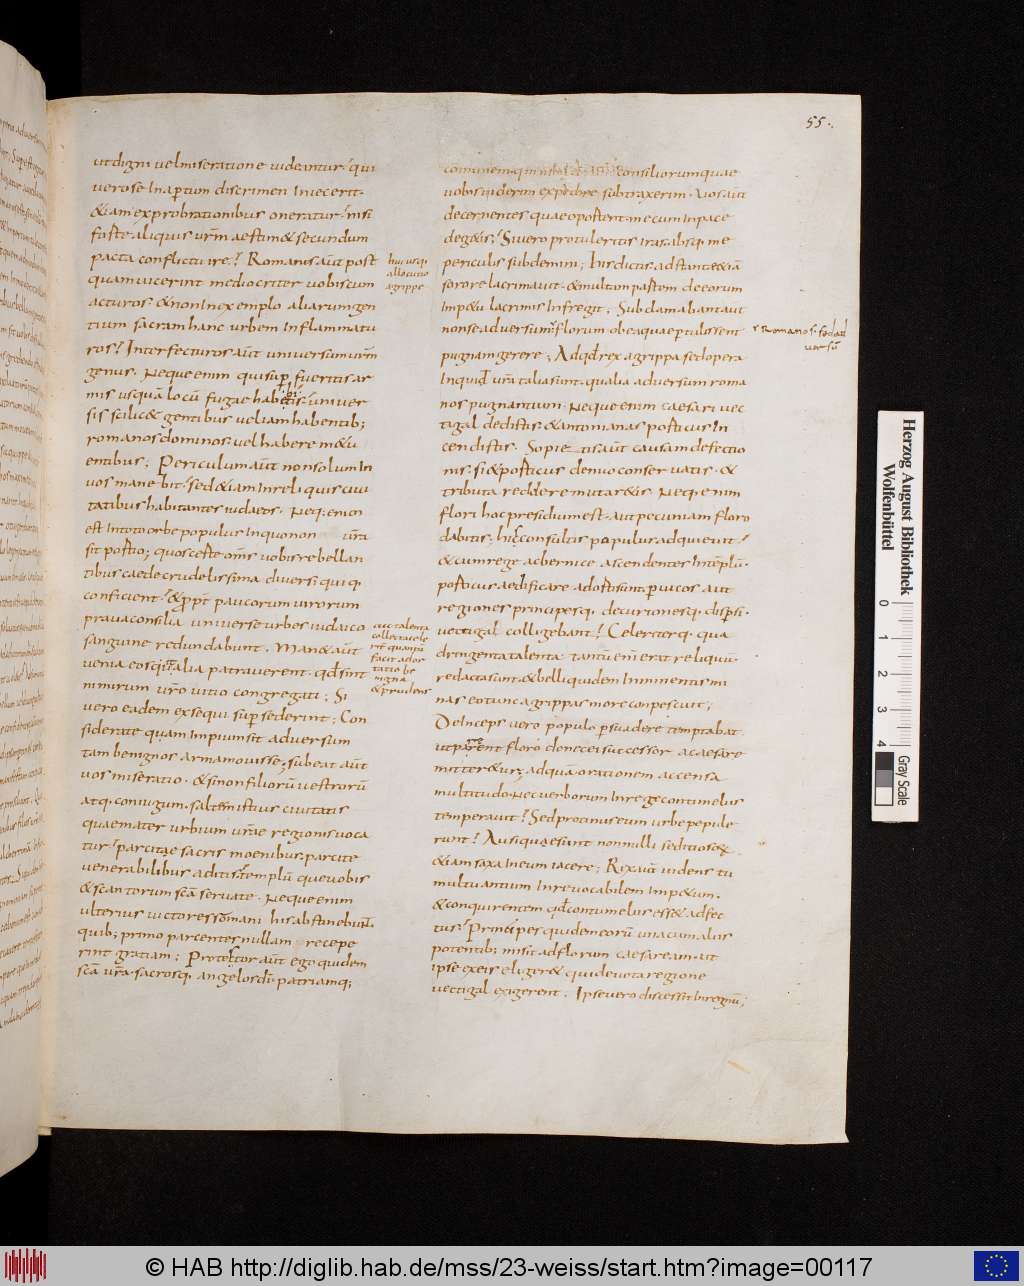 55.
ut digni uel miseratione uideantur. qui
uero se inaptum discrimen iniecerit.
&iam exprobrationibus oneratur. nisi
forte aliquis urm̄ aestim& secundum
pacta conflicture? Romanis aūt post
quam uicerint mediocriter uobiscum
acturos. & non in exemplo aliarum gen
tium sacram hanc urbem inflammatu
ros? Interfecturos aūt uniuersum urm̄
genus. Neque enim qui sup fueritis ar
mis usquā locū fugae habetis. uniuer
sis scilic& gentibus uel iam habentib;
romanos dominos. uel habere m&u
entibus; Periculum aūt non solum in
uos manebit. sed &iam in reliquis ciui
tatibus habitantes iudaeos. Neq. enim
est in toto orbe populus in quo non urā
sit portio; quos certe om̄s uobis rebellan
tibus caede crudelissima diuersi quiq.
conficient. & pp̄t paucorum uirorum
praua consilia uniuerse urbes iudaico
sanguine redundabunt. Man& aūt
uenia eos qui talia patrauerent. qd̄ si sint
nimirum ur̄o uitio congregati. Si
uero eadem exsequi supsederint; Con
siderate quam impium sit aduersum
tam benignos arma mouisse; subeat aūt
uos miseratio. & si non filiorū uestrorū
atq. coniugum. saltem istius ciuitatis
quae mater urbium urae regionis uoca
tur. parcitae sacris moenibus. parcite
uenerabilibus aditis. templū que uobis
& scantorum scā seruate. Neque enim
ulterius uictores romani his abstinebunt.
quib; primo parcentes nullam recepe
rint gratiam; Protestor aūt ego quidem
scā urā. sacrosq. angelos dī patriamq;
huiusq;
allocutio
agrippe
collecta uele
facit ador
tatio be
nigna
& prudens
consiliorum quae
uobis expedire subtraxerim. Uos aūt
decernentes quae oportent. mecum in pace
deg&is; Si uero protuleritis iras. absq. me
periculis subdemini; His dictis. adstante &iā
sorore lacrimauit. & multo partem deorum
imp&u lacrimis infregit; Subclamabant aut
non se aduersum florum ob ea quae ptulissent
pugnam gerere; Ad qd̄ rex agrippa. sed opera
inquid urā talia sunt. qualia aduersum roma
nos pugnantium. Neque enim caesari uec
tigal dedistis. & antonianas porticus in
cendistis. Sopietis aūt causam defectio
nis. si & porticus denuo conseruatis. &
tributa reddere mitar&is. Neq; enim
flori hoc presidium est. aut pecuniam floro
dabitis; his consultis populus adquieuit.
& cum rege ac bernice ascendentes in templū.
porticus aedificare adorti sunt. p uicos aut
regiones principesq. decurionesq. dispersi.
uectigal colligebant? Celeriterq. qua
dringenta talenta tantū em̄ erat reliquū.
redacta sunt. & belli quidem inminentis mi
nas eo tunc agrippas more conpescuit;
Deinceps uero populo psuadere temptabat
ut parerent floro donec ei successor a caesare
mitter&ur; ad quā orationem accensa
multitudo. nec uerborum in rege contumeliis
temperauit? Sed protinus eum urbe pepule
runt? Ausi quae sunt nonnulli seditiosae.
&iam saxa in eum iacere; Rex aūt uidens tu
multuantium inreuocabilem imp&um.
& conquirentem qd̄ contumeliis ess& adfec
tus. Principes quidem eorū una cum aliis
potentib; misit ad florum caesaream. ut
ipse ex eis elig&& qui deuota regione
uectigal exigerent. Ipse uero discessit in regnū;
romanos. sed ad
uersū
Herzog August Bibliothek
Wolfenbüttel
0 1 2 3 4
Gray Scale
© HAB http://diglib.hab.de/mss/23-weiss/start.htm?image=00117